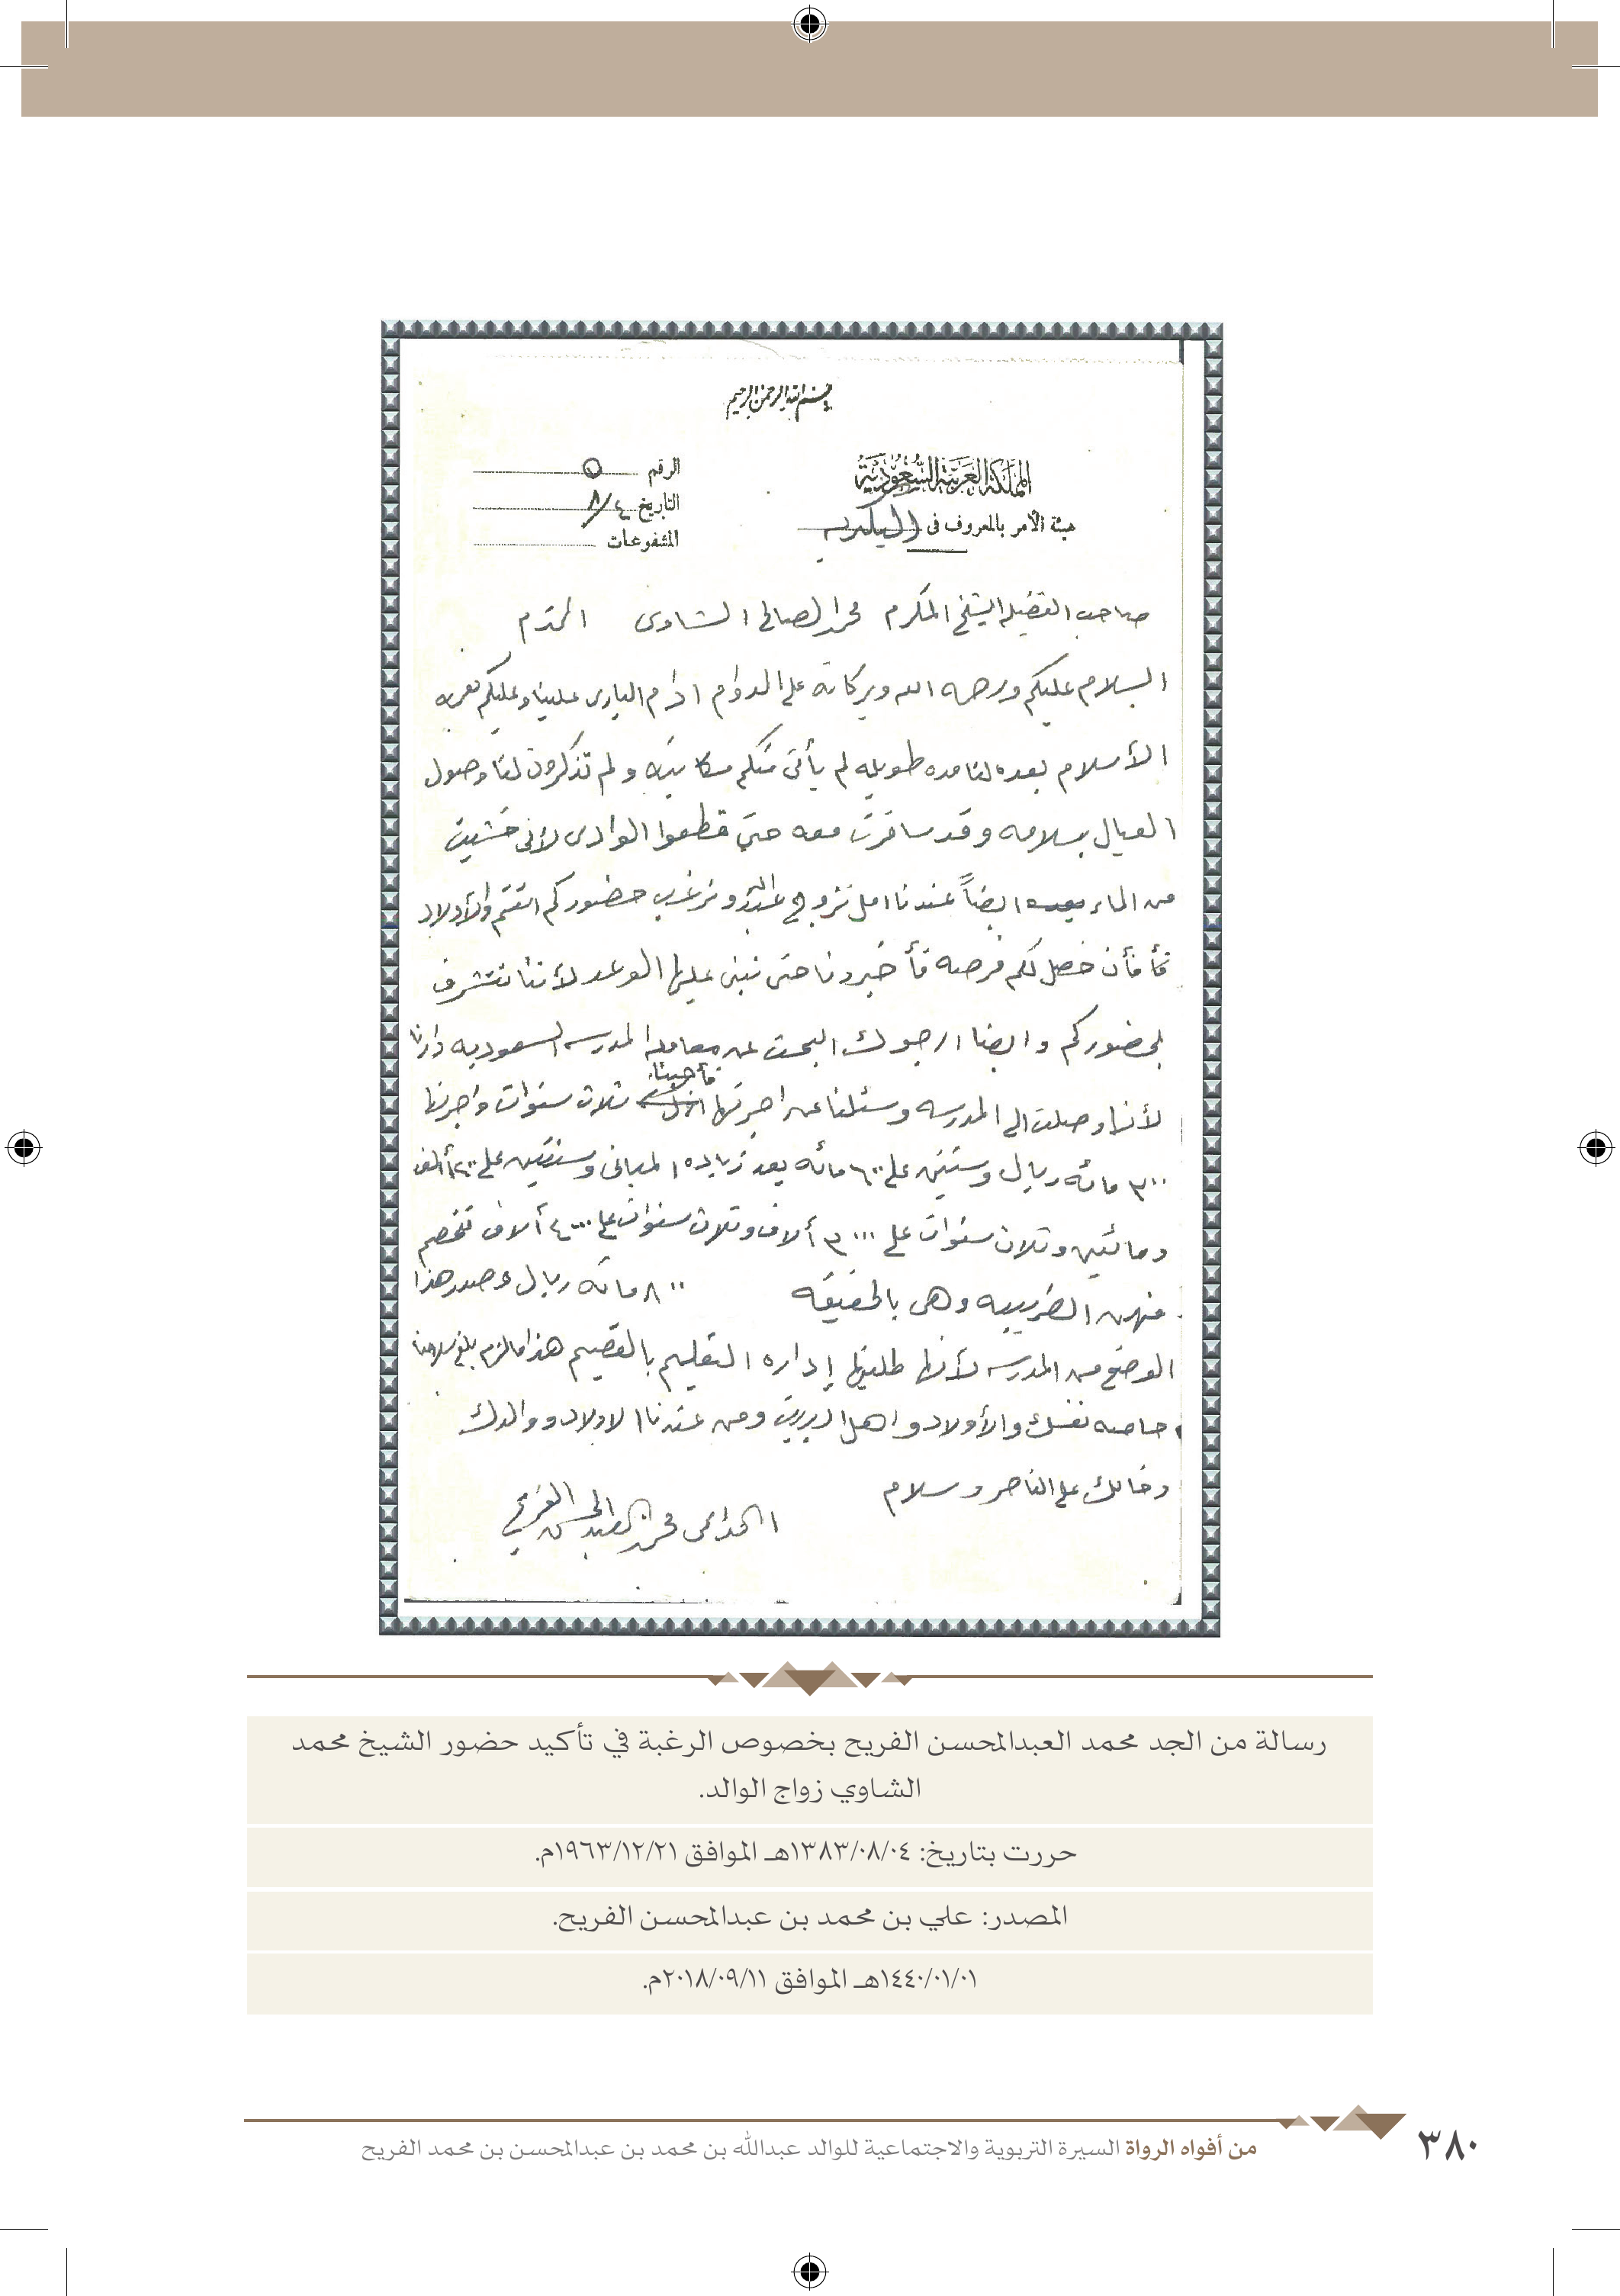 بسم الله الرحمن الرحيم
المملكة العربية السعودية
هيئة الأمر بالمعروف في البكيرية
الرقم ٥
التاريخ ٤/٨
المشفوعات
صاحب الفضيله الشيخ المكرم محمد الصالح الشاوى المحترم
السلام عليكم ورحمه الله وبركاته على الدوام ادام البارى علينا وعليكم نعمه
الأسلام بعده لنا مده طويله لم يأتى منكم مكاتيبه ولم تذكرون لنا وصول
العيال بسلامه وقد سافرت معه حتى قطعوا الوادى لأنى خشيت
من الماء ايضاً عندنا امل نزوج عبدالله ونرغب حضوركم انتم والأولاد
فأن حصل لكم فرصه فأخبرونا حتى نبنى عليها الوعد لأننا نتشرف
بحضوركم وايضا ارجوك البحث عن معامله المدرسه السعوديه
لأنها وصلت الى المدرسه وسئلنا عن اجرتها فأجبنا ثلاث سنوات واجرتها
٣٠٠ مائه ريال وسنتين على ٦٠٠ مائه بعد زياده المبانى وسنتين على ١٢٠٠ ألف
ومائتين وثلاث سنوات على ٣٠٠٠ ألاف وثلاث سنوات على ٤٠٠٠ ألاف تخصم
منهن الضريبه وهى بالحقيقه ٨٠٠ مائه ريال وصدر هذا
الوضع من المدرسه لأنها طلبتها إداره التعليم بالقصيم هذا مالزم بلغ سلامنا
خاصه نفسك والأولاد واهل البيت ومن عندنا الاولاد ووالدك
وخالك على الناصر وسلام
الداعى محمد العبدالمحسن الفريح
رسالة من الجد محمد العبدالمحسن الفريح بخصوص الرغبة في تأكيد حضور الشيخ محمد
الشاوي زواج الوالد.
حررت بتاريخ: ١٣٨٣/٠٨/٠٤هـ الموافق ١٩٦٣/١٢/٢١م.
المصدر: علي بن محمد بن عبدالمحسن الفريح.
١٤٤٠/٠١/٠١هـ الموافق ٢٠١٨/٠٩/١١م.
من أفواه الرواة السيرة التربوية والاجتماعية للوالد عبدالله بن محمد بن عبدالمحسن بن محمد الفريح
٣٨٠